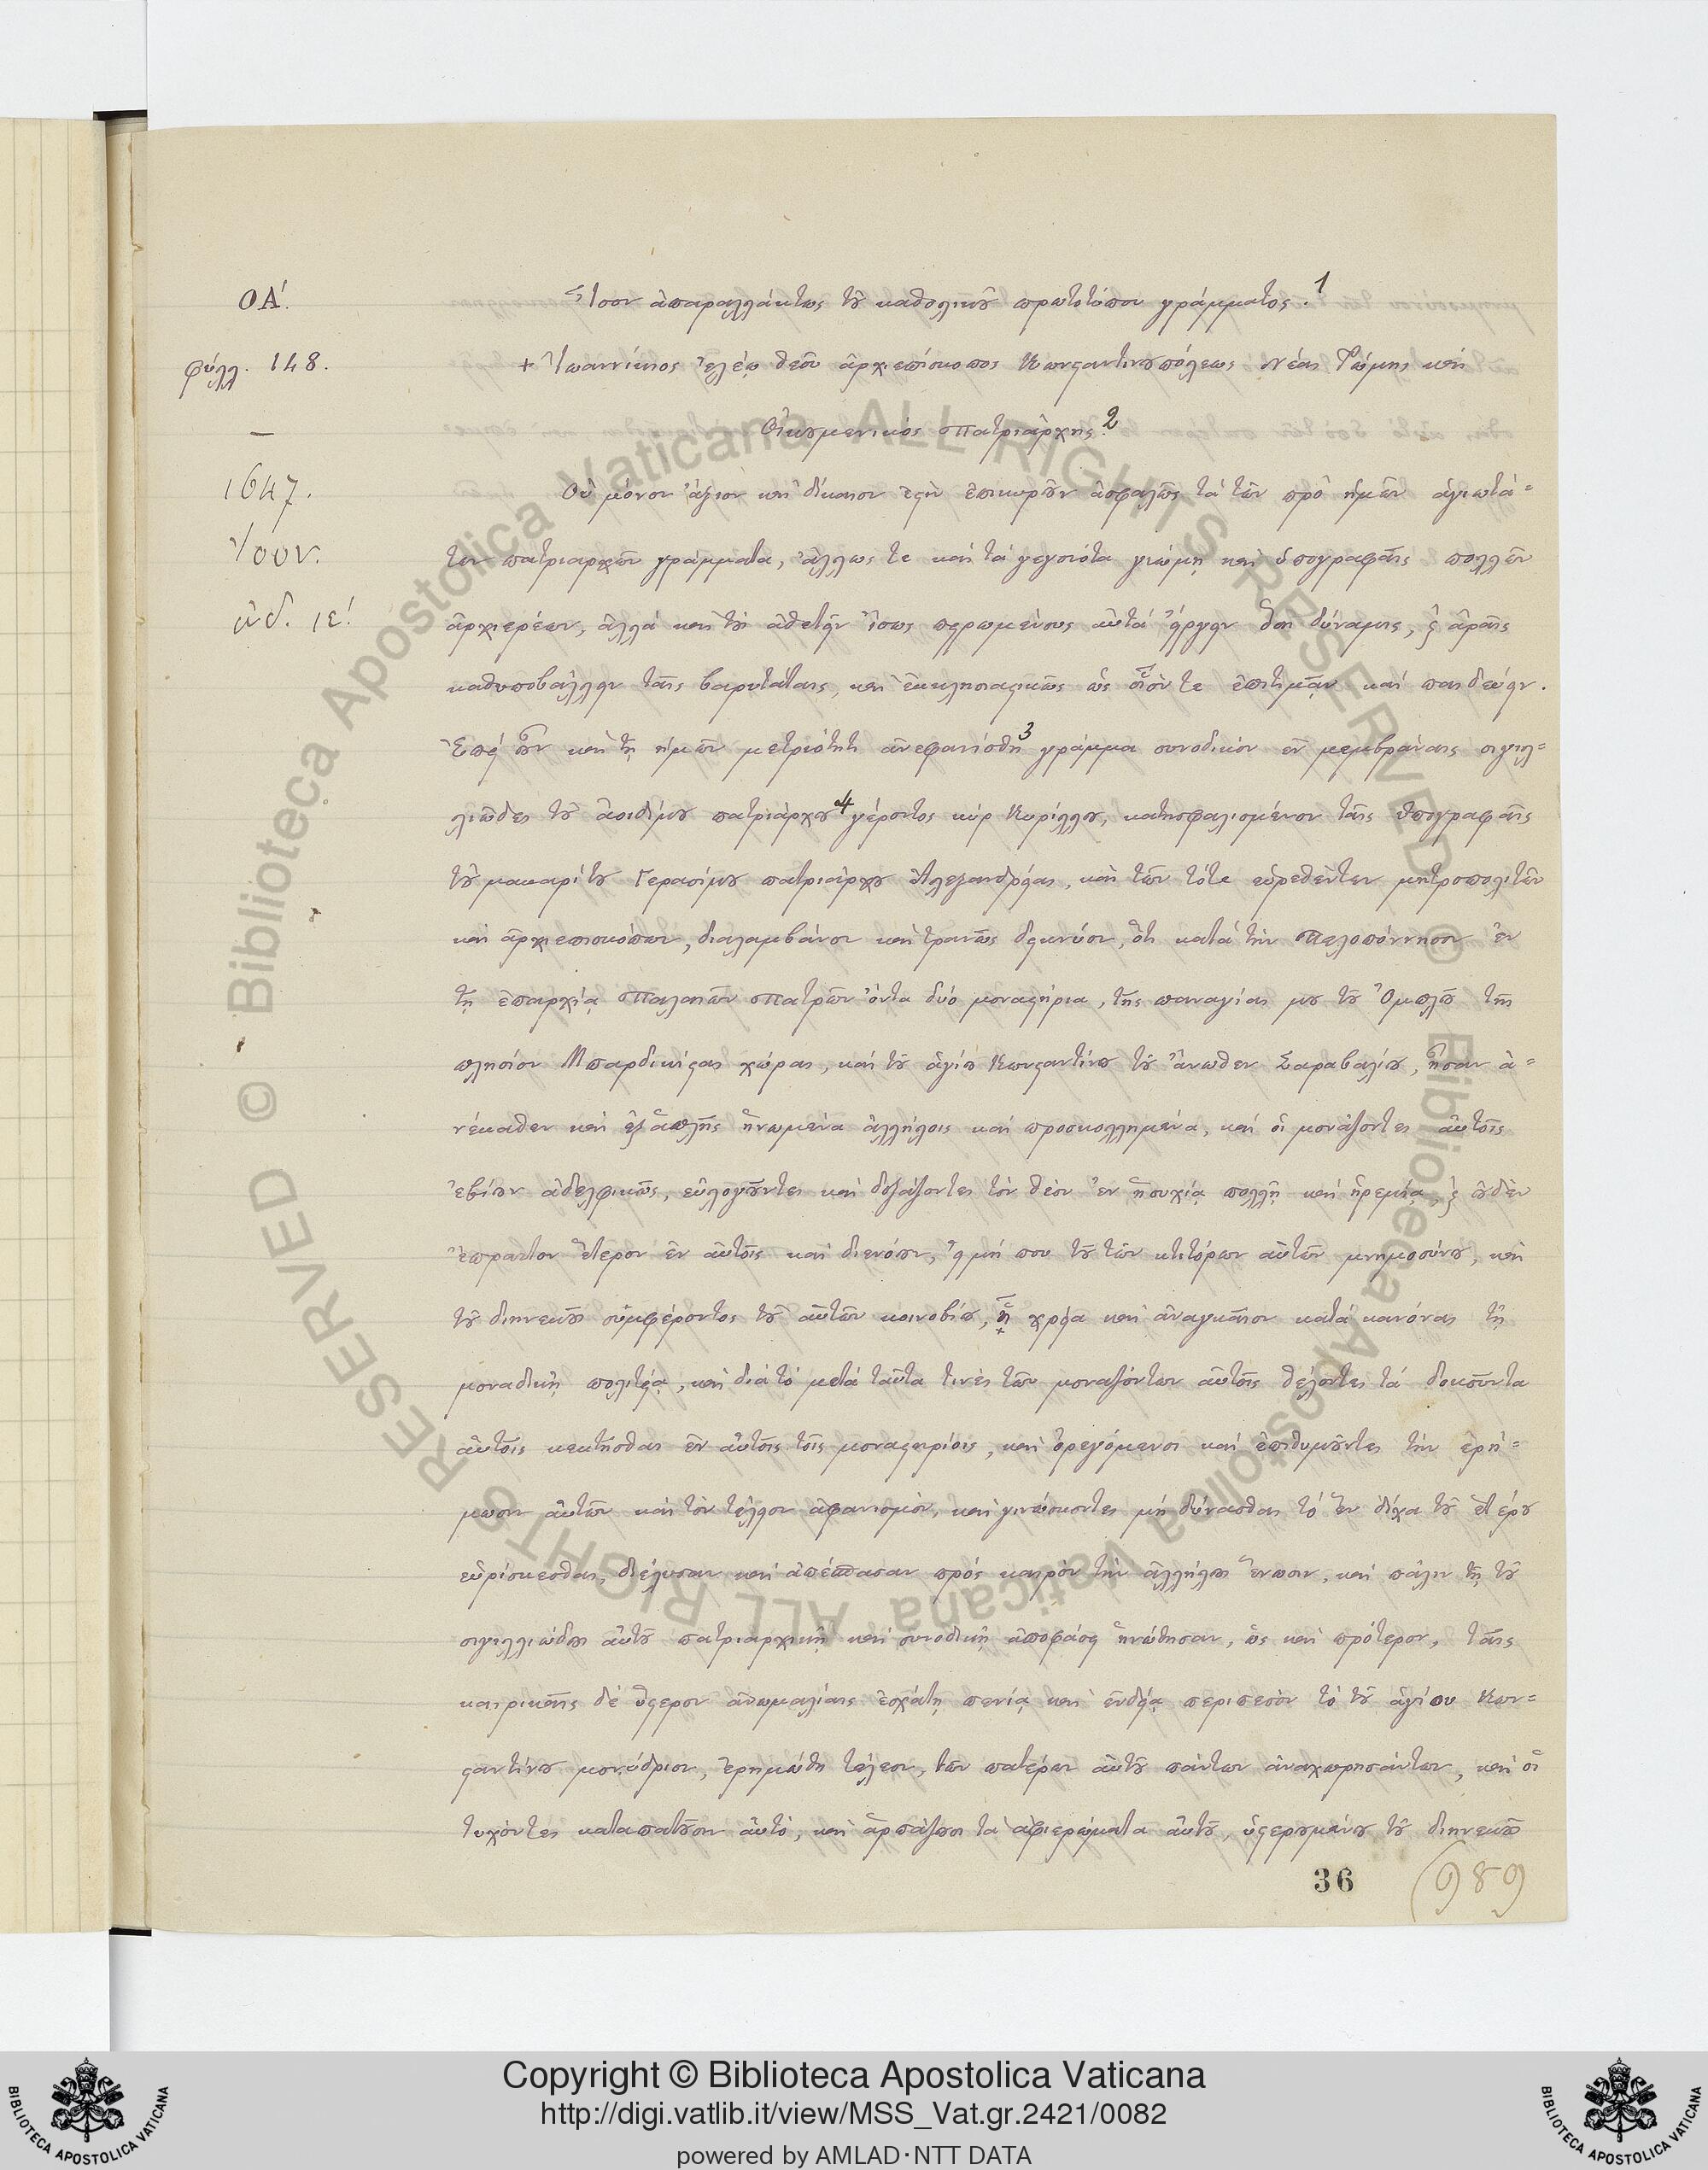 ΟΑ΄.
Ἴσον ἀπαραλλάκτως τοῦ καθολικοῦ πρωτοτύπου γράμματος.1
φύλλ. 148.
+ Ἰωαννίκιος ἐλέῳ θεοῦ ἀρχιεπίσκοπος Κωνϛαντινουπόλεως Νέας Ῥώμης καὶ
Οἰκουμενικὸς Πατριάρχης.2
1647.
Ἰουν.
ἰνδ. ιε΄.
Οὐ μόνον ἄξιον καὶ δίκαιόν ἐϛιν ἐπικυροῦν ἀσφαλῶς τὰ τῶν πρὸ ἡμῶν ἁγιωτά=
των πατριαρχῶν γράμματα, ἄλλως τε καὶ τὰ γεγονότα γνώμῃ καὶ ὑπογραφαῖς πολλῶν
ἀρχιερέων, ἀλλὰ καὶ τοὺς ἀθετεῖν ἴσως πειρωμένους αὐτὰ εἴργειν ὅση δύναμις, ϗ ἀραῖς
καθυποβάλλειν ταῖς βαρυτάταις, καὶ ἐκκλησιαϛικῶς ὡς οἷόν τε ἐπιτιμᾷν καὶ παιδεύειν.
Ἐπεὶ οὖν καὶ τῇ ἡμῶν μετριότητι ἀνεφανίσθη3 γράμμα συνοδικὸν ἐν μεμβράναις σιγιλ=
λιῶδες τοῦ ἀοιδίμου πατριάρχου4 γέροντος κὺρ Κυρίλλου, κατησφαλισμένον ταῖς ὑπογραφαῖς
τοῦ μακαρίτου Γερασίμου πατριάρχου Ἀλεξανδρείας, καὶ τῶν τότε εὑρεθέντων μητροπολιτῶν
καὶ ἀρχιεπισκόπων, διαλαμβάνον καὶ τρανῶς δεικνύον, ὅτι κατὰ τὴν Πελοπόννησον ἐν
τῇ ἐπαρχίᾳ Παλαιῶν Πατρῶν ὄντα δύο μοναϛήρια, τῆς παναγίας μου τοῦ Ὀμπλοῦ τῆς
πλησίον Μπαρδικιϛας χώρας, καὶ τοῦ ἁγίου Κωνϛαντίνου τοῦ ἄνωθεν Σαραβαλίου, ἦσαν ἀ=
νέκαθεν καὶ ἐξ ἁπλῆς ἡνωμένα ἀλλήλοις καὶ προσκολλημένα, καὶ οἱ μονάζοντες αὐτοῖς
ἐβίουν ἀδελφικῶς, εὐλογοῦντες καὶ δοξάζοντες τὸν θεὸν ἐν ἡσυχίᾳ πολλῇ καὶ ἠρεμίᾳ, ϗ οὐδὲν
ἔπραττον ἕτερον ἐν αὐτοῖς καὶ διενόουν, εἰ μή που τοῦ τῶν κτιτόρων αὐτῶν μνημοσύνου, καὶ
τοῦ διηνεκοῦς συμφέροντος τοῦ αὐτῶν κοινοβίου, ᾗ χρεία καὶ ἀναγκαῖον κατὰ κανόνας τῇ
μοναδικῇ πολιτείᾳ, καὶ διὰ τὸ μετὰ ταῦτα τινὲς τῶν μοναζόντων αὐτοῖς θέλοντες τὰ δοκοῦντα
αὐτοῖς κεκτῆσθαι ἐν αὐτοῖς τοῖς μοναϛηρίοις, καὶ ὀρεγόμενοι καὶ ἐπιθυμοῦντες τὴν ἐρή=
μωσιν αὐτῶν καὶ τὸν τέλειον ἀφανισμὸν, καὶ γινώσκοντες μὴ δύνασθαι τὸ ἓν δίχα τοῦ ἑτέρου
εὑρίσκεσθαι, διέλυσαν καὶ ἀπέσπασαν πρὸς καιρὸν τὴν ἀλλήλων ἕνωσιν, καὶ πάλιν τῇ τοῦ
σιγιλλιώδους αὐτοῦ πατριαρχικῇ καὶ συνοδικῇ ἀποφάσει ἡνώθησαν, ὡς καὶ πρότερον, ταῖς
καιρικαῖς δὲ ὕϛερον ἀνωμαλίαις ἐσχάτῃ πενίᾳ καὶ ἐνδείᾳ περιπεσὸν τὸ τοῦ ἁγίου Κων=
ϛαντίνου μονύδριον, ἐρημώθη τέλεον, τῶν πατέρων αὐτοῦ πάντων ἀναχωρησάντων, καὶ οἱ
τυχόντες καταπατοῦσιν αὐτὸ, καὶ ἁρπάζουσι τὰ ἀφιερώματα αὐτοῦ, ὑϛερουμένου τοῦ διηνεκοῦς
36 (989
© Biblioteca Apostolica Vaticana ALL RIGHTS RESERVED © Biblioteca Apostolica Vaticana ALL RIGHTS RESERVED
Copyright © Biblioteca Apostolica Vaticana
http://digi.vatlib.it/view/MSS_Vat.gr.2421/0082
powered by AMLAD·NTT DATA
BIBLIOTECA APOSTOLICA VATICANA
BIBLIOTECA APOSTOLICA VATICANA